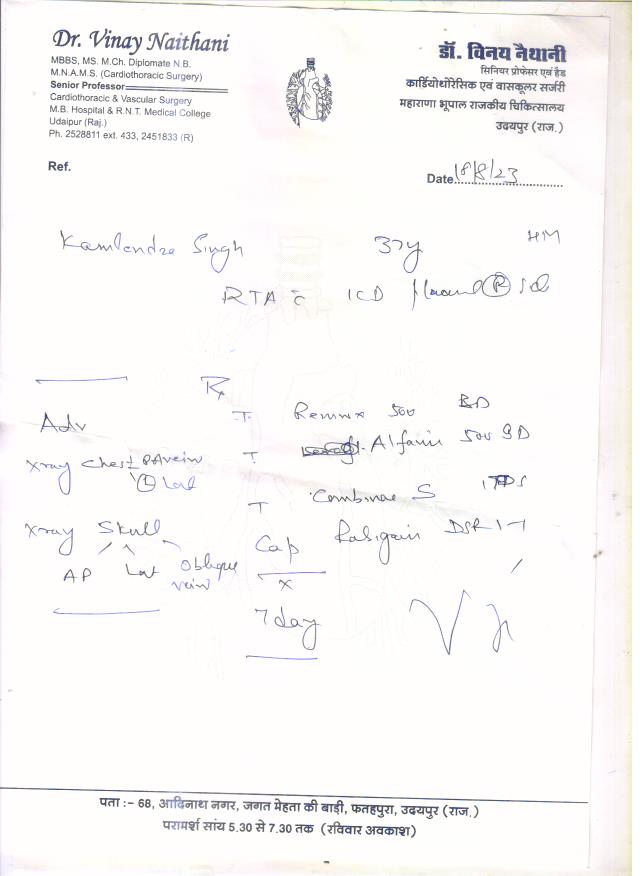 Dr. Vinay Naithani
MBBS, MS. M.Ch. Diplomate N.B.
M.N.A.M.S. (Cardiothoracic Surgery)
Senior Professor
Cardiothoracic & Vascular Surgery
M.B. Hospital & R.N.T. Medical College
Udaipur (Raj.)
Ph. 2528811 ext. 433, 2451833 (R)
डॉ. विनय नैथानी
सिनियर प्रोफेसर एवं हैड
कार्डियोथोरेसिक एवं वासकूलर सर्जरी
महाराणा भूपाल राजकीय चिकित्सालय
उदयपुर (राज.)
Ref.
Date 18/8/23
Kamlendra Singh 37y HM
RTA c̄ ICD placed (R)
Rx
Adv
T Remwx 500 BD
Xray Chest PA vein
(L) Lat
T Alfami 500 BD
T Combinae S
Xray Skull
AP Lat Oblique
vein
Cap Rabigain DSR 1-1
x
7 day
पता :- 68, आदिनाथ नगर, जगत मेहता की बाड़ी, फतहपुरा, उदयपुर (राज.)
परामर्श सांय 5.30 से 7.30 तक (रविवार अवकाश)